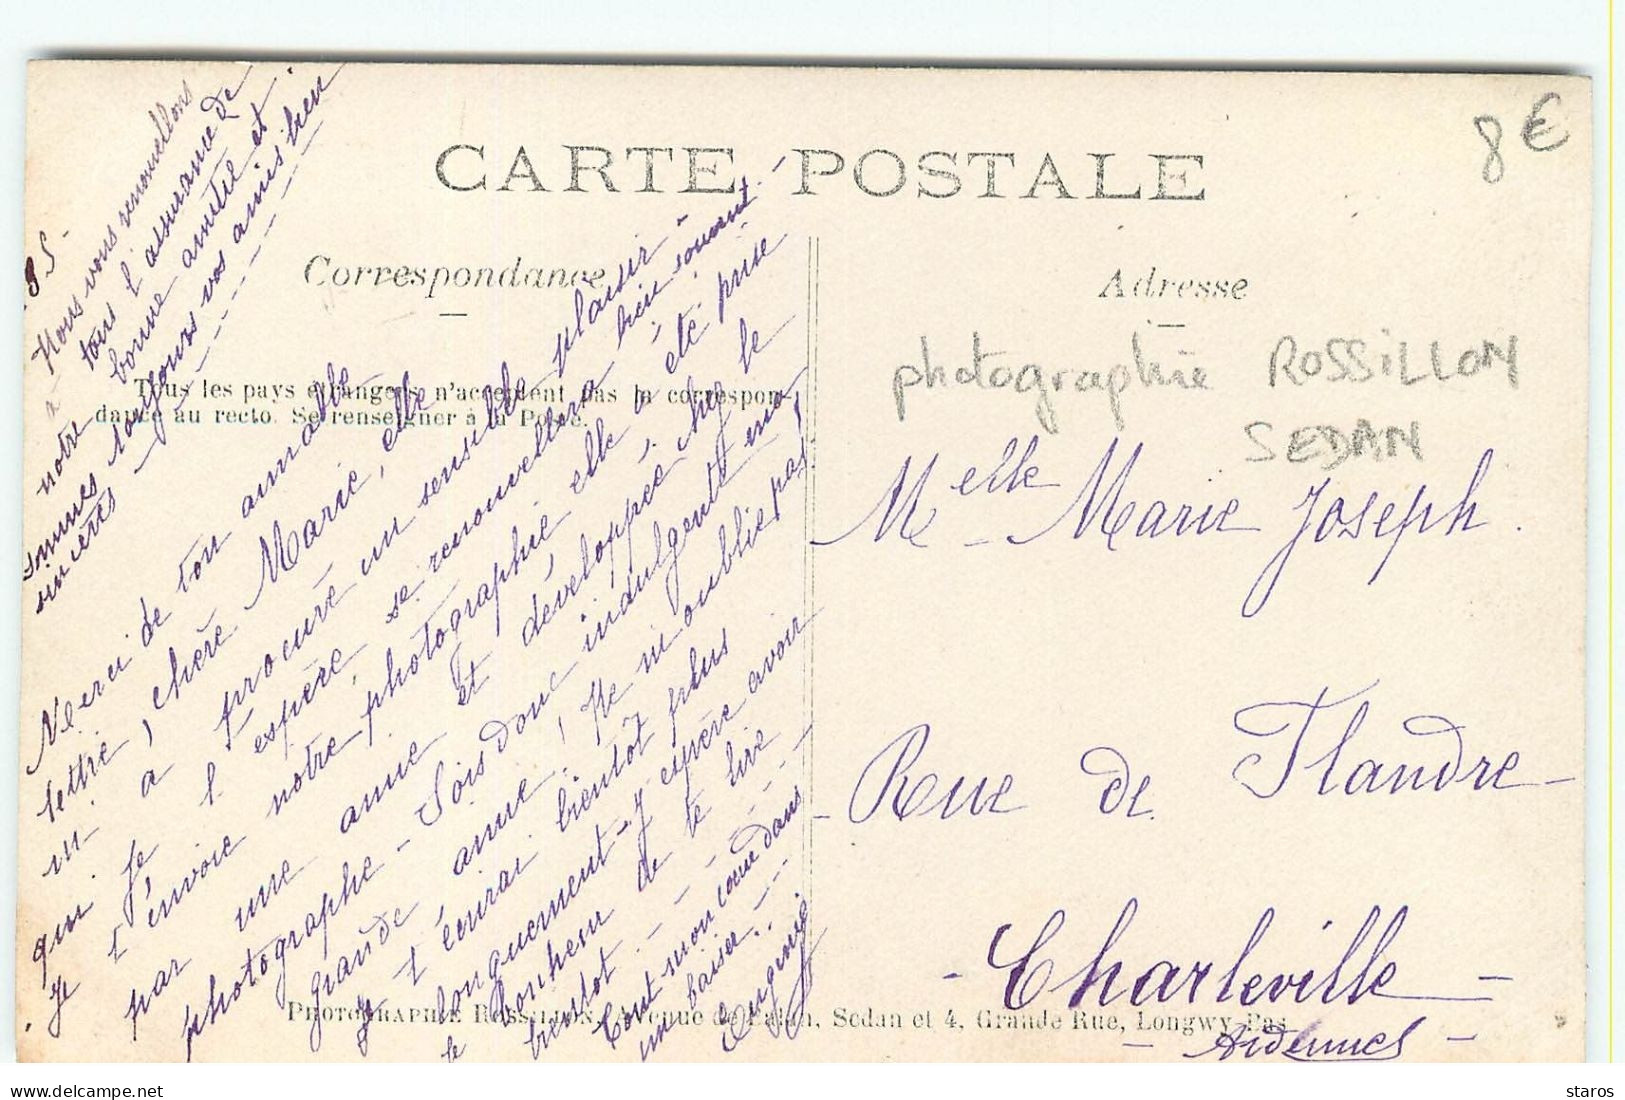 CARTE POSTALE
8 €
Correspondance
Adresse
Tous les pays étrangers n'acceptent pas la correspon-
dance au recto. Se renseigner à la Poste.
photographie ROSSILLON
SEDAN
Melle Marie Joseph.
Rue de Flandre
Charleville
Ardennes
Nous vous renouvellons
tous l'assurance de
notre bonne amitié et
sommes toujours vos amis bien
sincères
Merci de ton aimable
lettre, chère Marie, elle
m'a procuré un sensible plaisir
qui je l'espère, se renouvellera bien souvent.
Je t'envoie notre photographie, elle a été prise
par une amie et développée chez le
photographe - Sois donc indulgente ma
grande amie! Ne m'oublie pas!
Je t'écrirai bientôt plus
longuement - J'espère avoir
le bonheur de te lire
bientôt.
Tout mon cœur dans
un baiser.
Eugénie
PHOTOGRAPHIE ROSSILLON, Avenue de Sedan et 4, Grande Rue, Longwy-Bas
staros